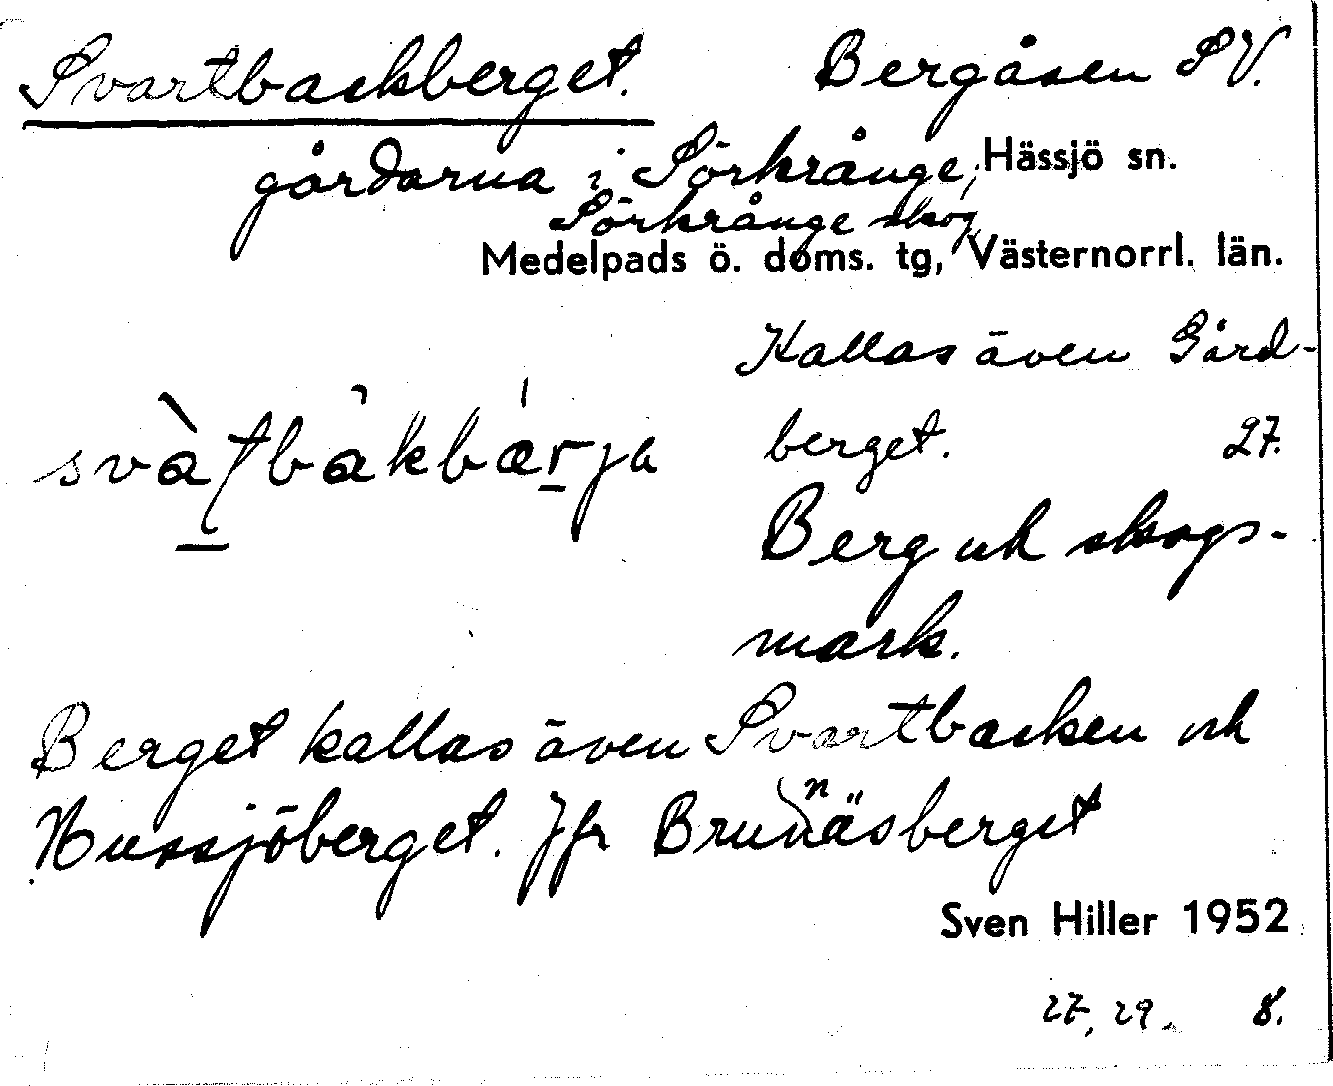 Svartbackberget. Bergåsen SV.
gårdarna i Sörkrånge, Hässjö sn.
Sörkrånge skog
Medelpads ö. doms. tg, Västernorrl. län.
Kallas även Gård-
berget. 27.
Berg och skogs-
mark.
Berget kallas även Svartbacken och
Hussjöberget. Jfr Brunnäsberget
Sven Hiller 1952
27, 29. 8.